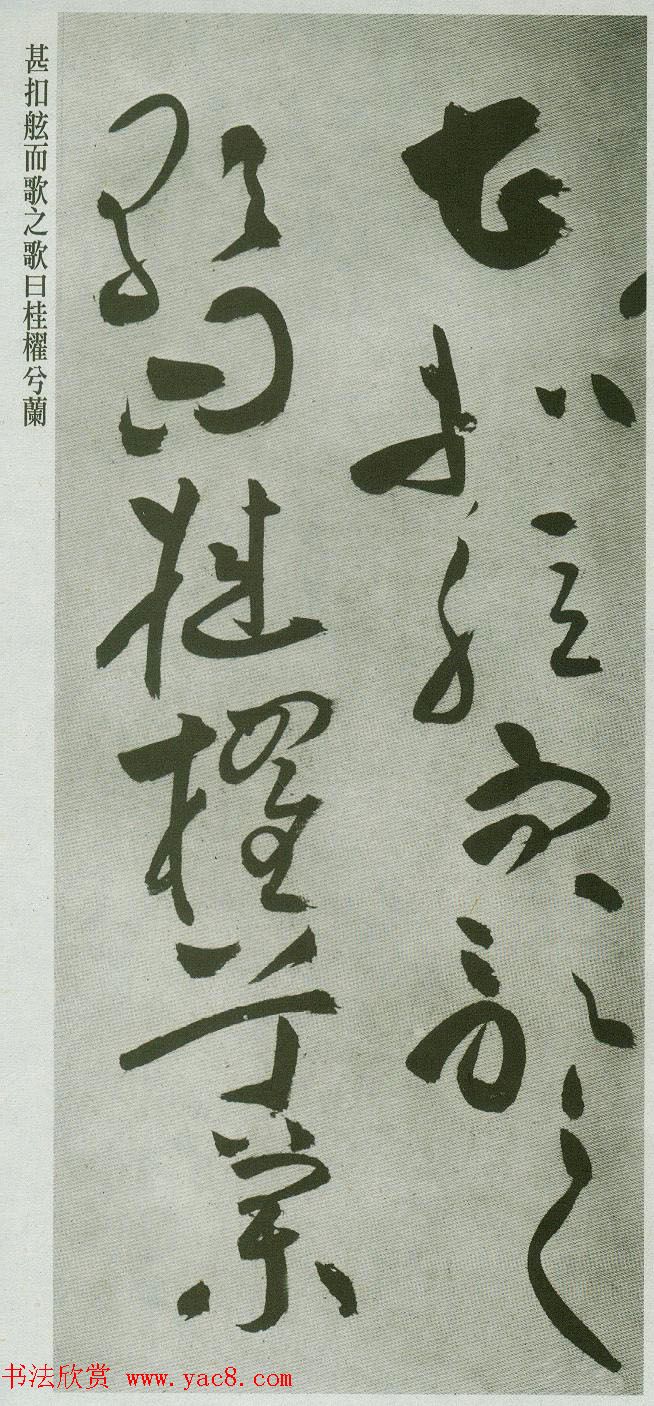 甚扣舷而歌之
歌曰桂櫂兮蘭
甚扣舷而歌之歌曰桂櫂兮蘭
书法欣赏 www.yac8.com